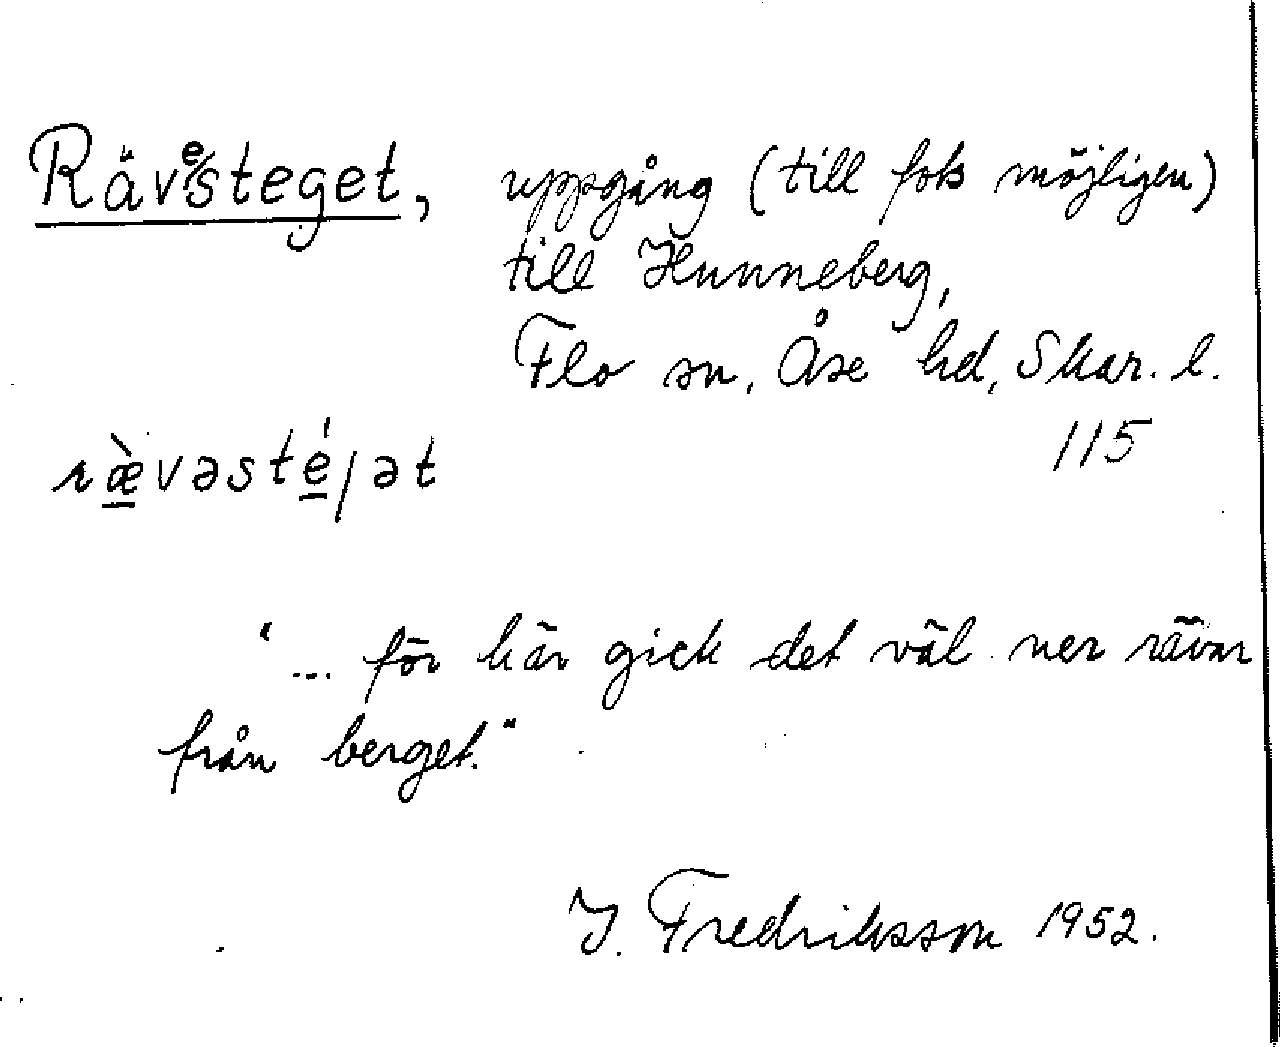 Rävesteget, uppgång (till fots möjligen)
till Hunneberg,
Flo sn, Åse hd, Skar. l.
115
rævəstéjət
"... för här gick det väl ner rävar
från berget."
I. Fredriksson 1952.